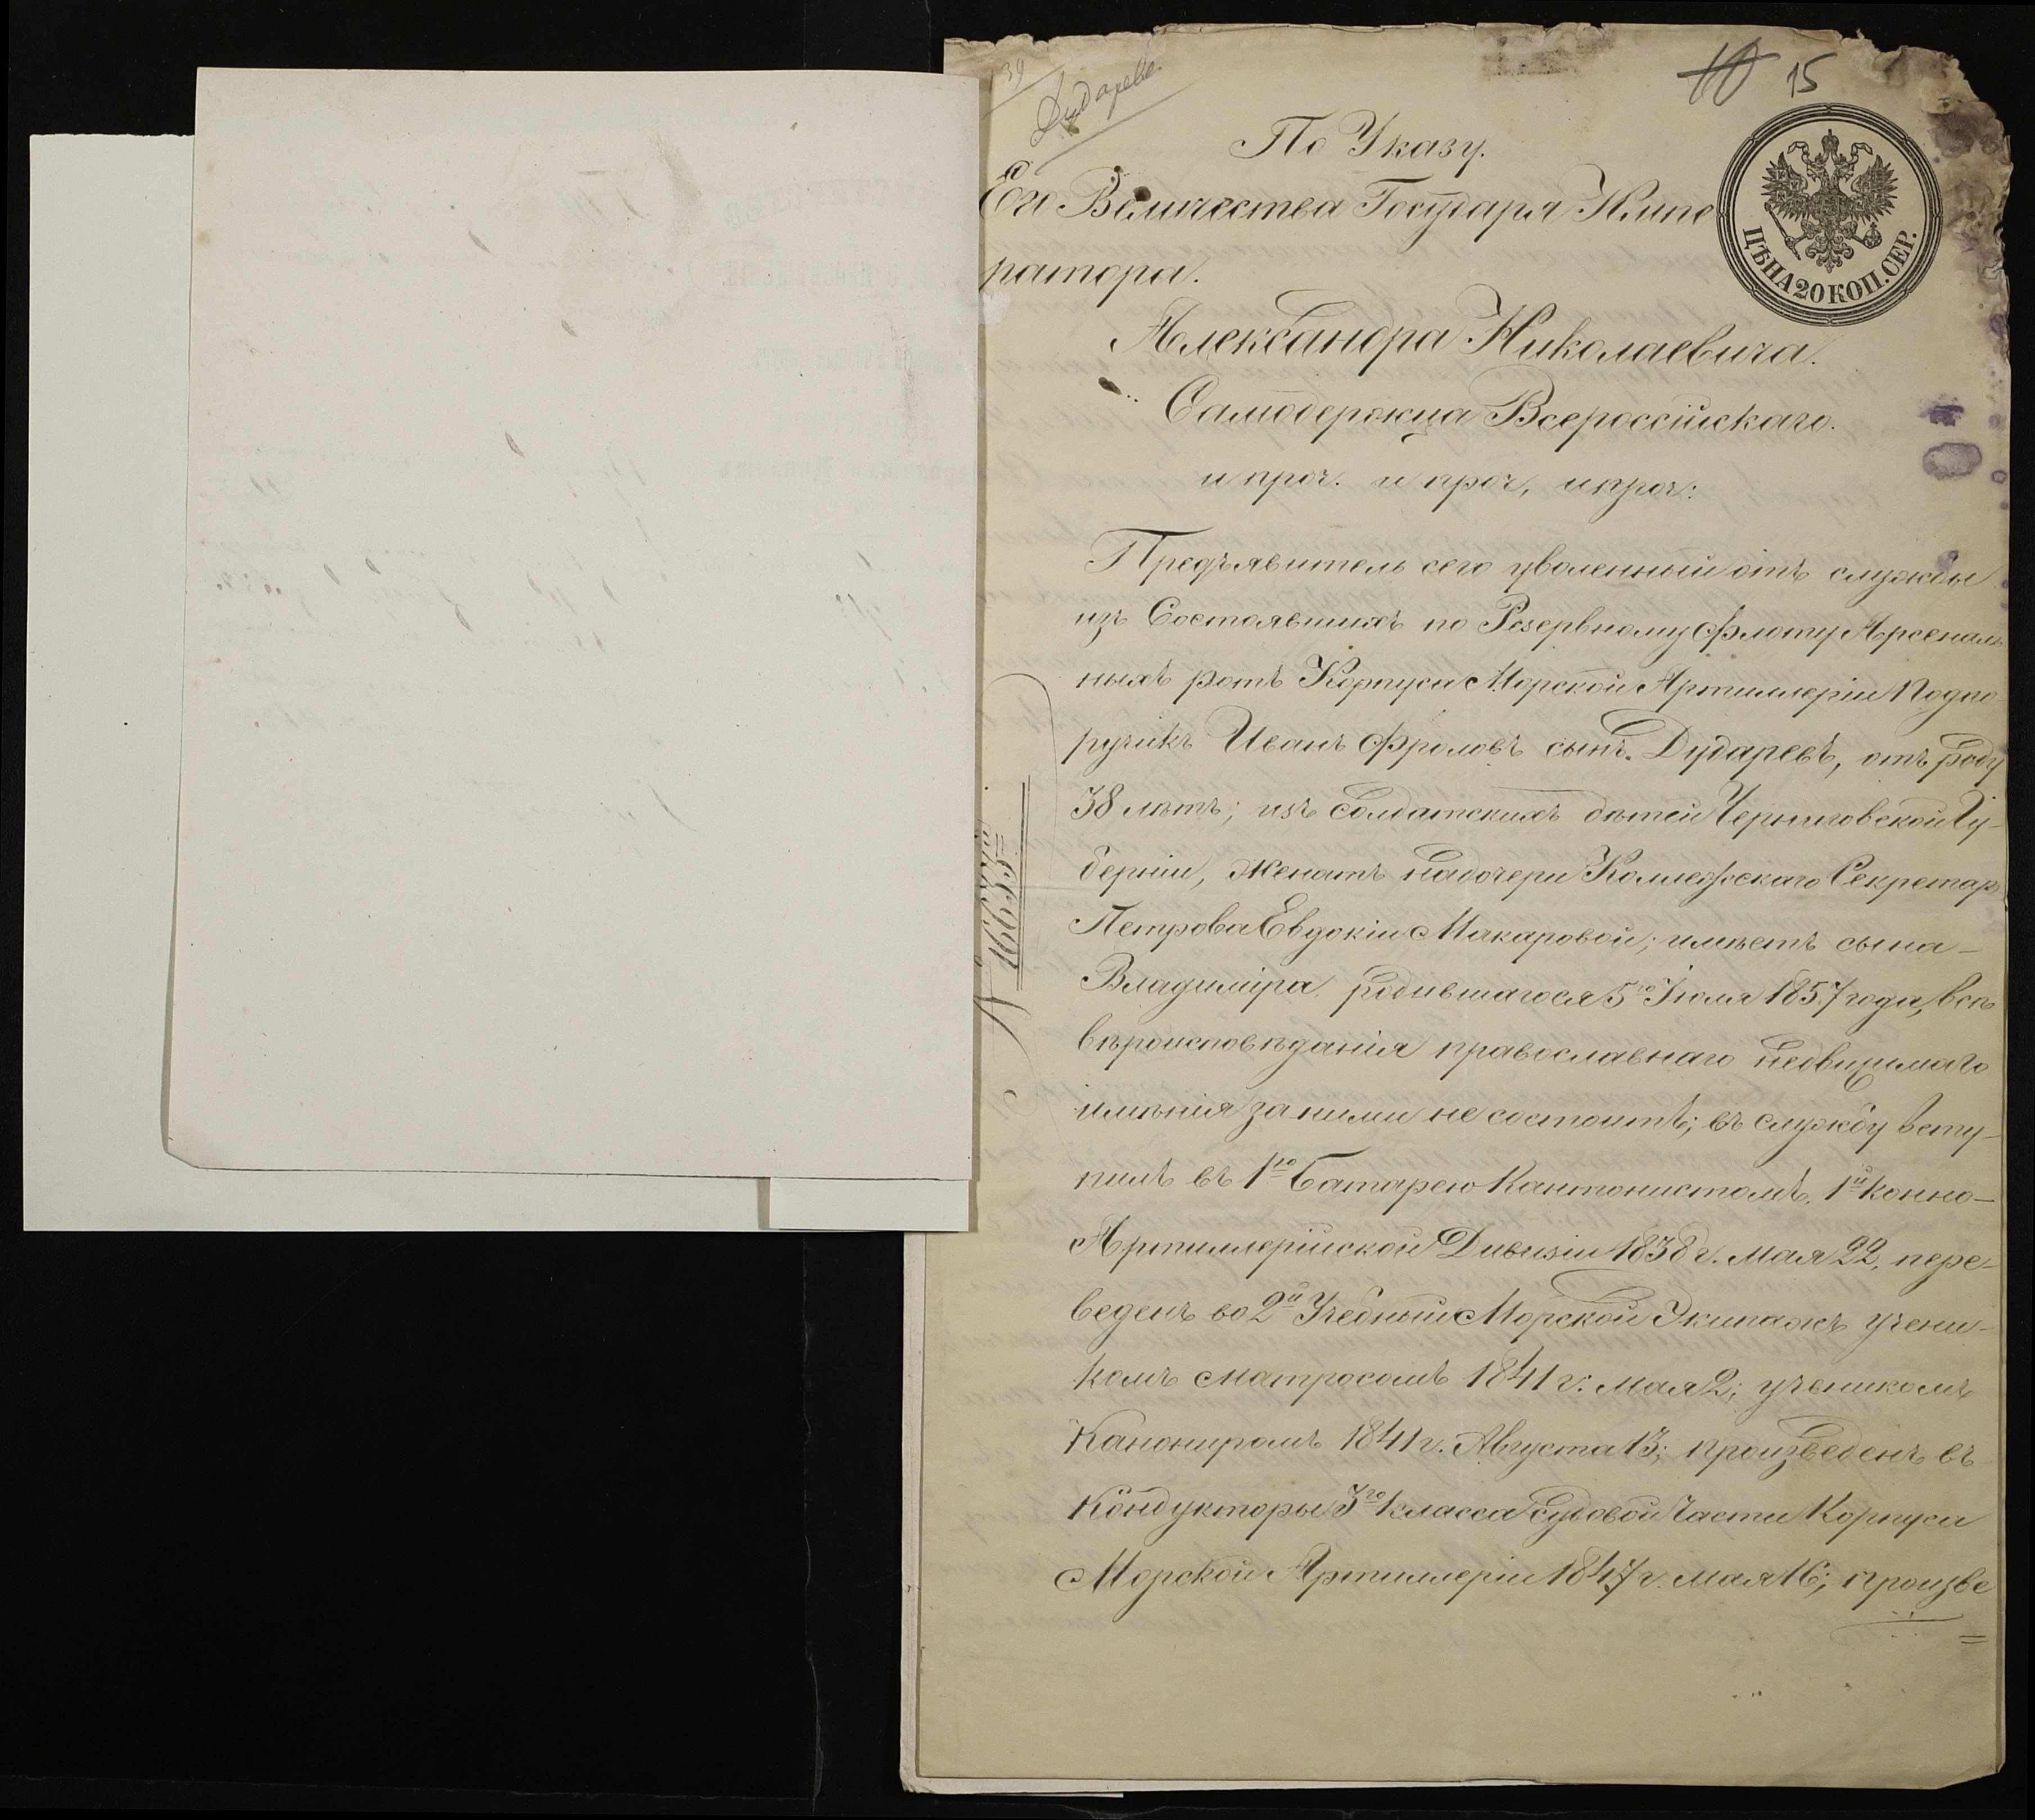 39
Дударева
10 15
ЦѢНА 20 КОП. СЕР.
По Указу.
Его Величества Государя Импе
ратора.
Александра Николаевича.
Самодержца Всероссійскаго.
и проч. и проч, и проч:
Предъявитель сего уволенный отъ службы
изъ Состоявшихъ по Резервному Флоту Арсеналь
ныхъ ротъ Корпуса Морской Артиллеріи Подпо
ручикъ Иванъ Фроловъ сынъ Дударевъ, отъ роду
38 лѣтъ; изъ Солдатскихъ дѣтей Черниговской Гу-
берніи, женатъ на дочери Коллежскаго Секретар
Петрова Евдокіи Макаровой; имѣетъ сына-
Владиміра родившагося 5го Іюля 1857 года, всѣ
вѣроисповѣданія православнаго недвижимаго
имѣнія за ними не состоитъ; въ службу всту-
пилъ въ 1ю Батарею Кантонистомъ 1й конно-
Артиллерійской Дивизіи 1838 г. Мая 22, пере-
веденъ во 2й Учебный Морской Экипажъ учени-
комъ матросомъ 1841 г: Мая 2; ученикомъ
Канониромъ 1841 г. Августа 13; произведенъ въ
Кондукторы 3го класса Судовой Части Корпуса
Морской Артиллеріи 1847 г. Мая 16; произве